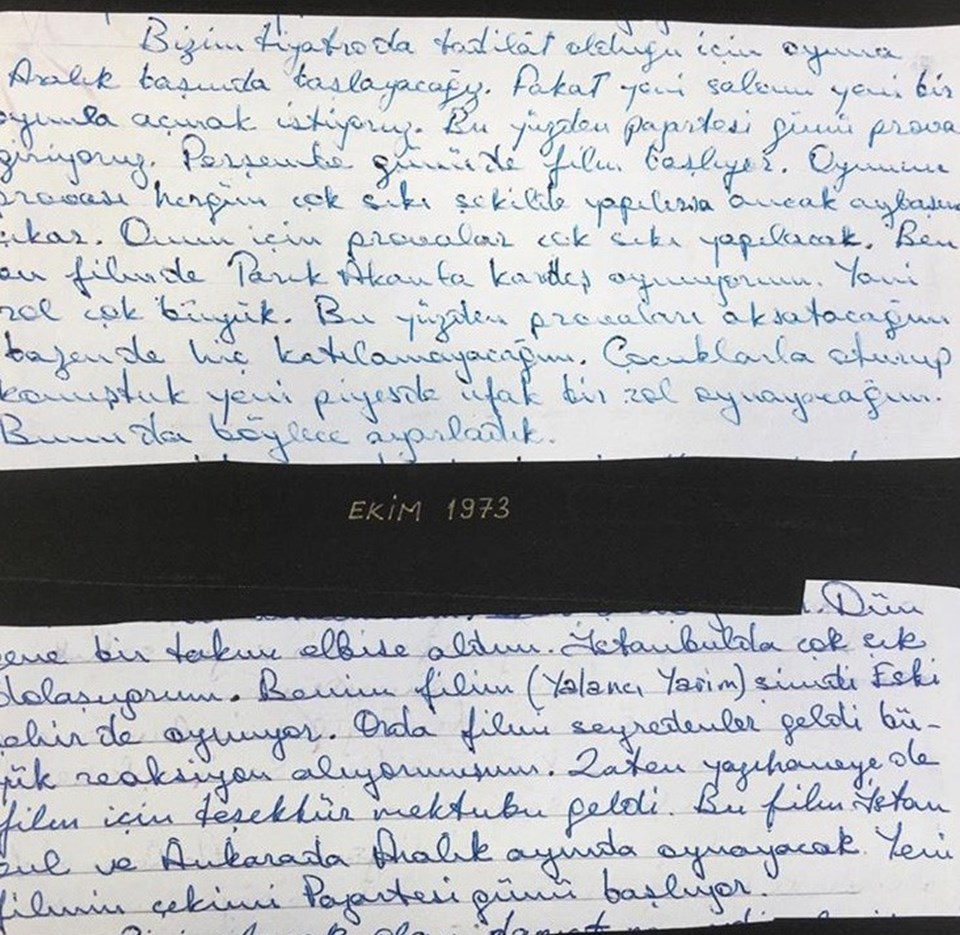 Bizim tiyatroda tadilât olduğu için oyuna
Aralık başında başlayacağız. Fakat yeni salonu yeni bir
oyunla açmak istiyoruz. Bu yüzden pazartesi günü prova
giriyoruz. Perşembe günü de film başlıyor. Oyunun
provası hergün çok sıkı şekilde yapılırsa ancak aybaşın
çıkar. Onun için provalar çok sıkı yapılacak. Ben
bu filmde Tarık Akanla kardeş oynuyorum. Yani
rol çok büyük. Bu yüzden provaları aksatacağım
bazen de hiç katılamayacağım. Çocuklarla oturup
konuştuk yeni piyeste ufak bir rol oynayacağım.
Bunu da böylece ayarladık.
EKİM 1973
Dün
gene bir takım elbise aldım. İstanbulda çok şık
dolaşıyorum. Benim filim (Yalancı Yarim) şimdi Eski
şehir de oynuyor. Orda filmi seyredenler geldi bü-
yük reaksiyon alıyormuşum. Zaten yazıhaneye de
film için teşekkür mektubu geldi. Bu film İstan
bul ve Ankarada Aralık ayında oynayacak. Yeni
filmin çekimi Pazartesi günü başlıyor.